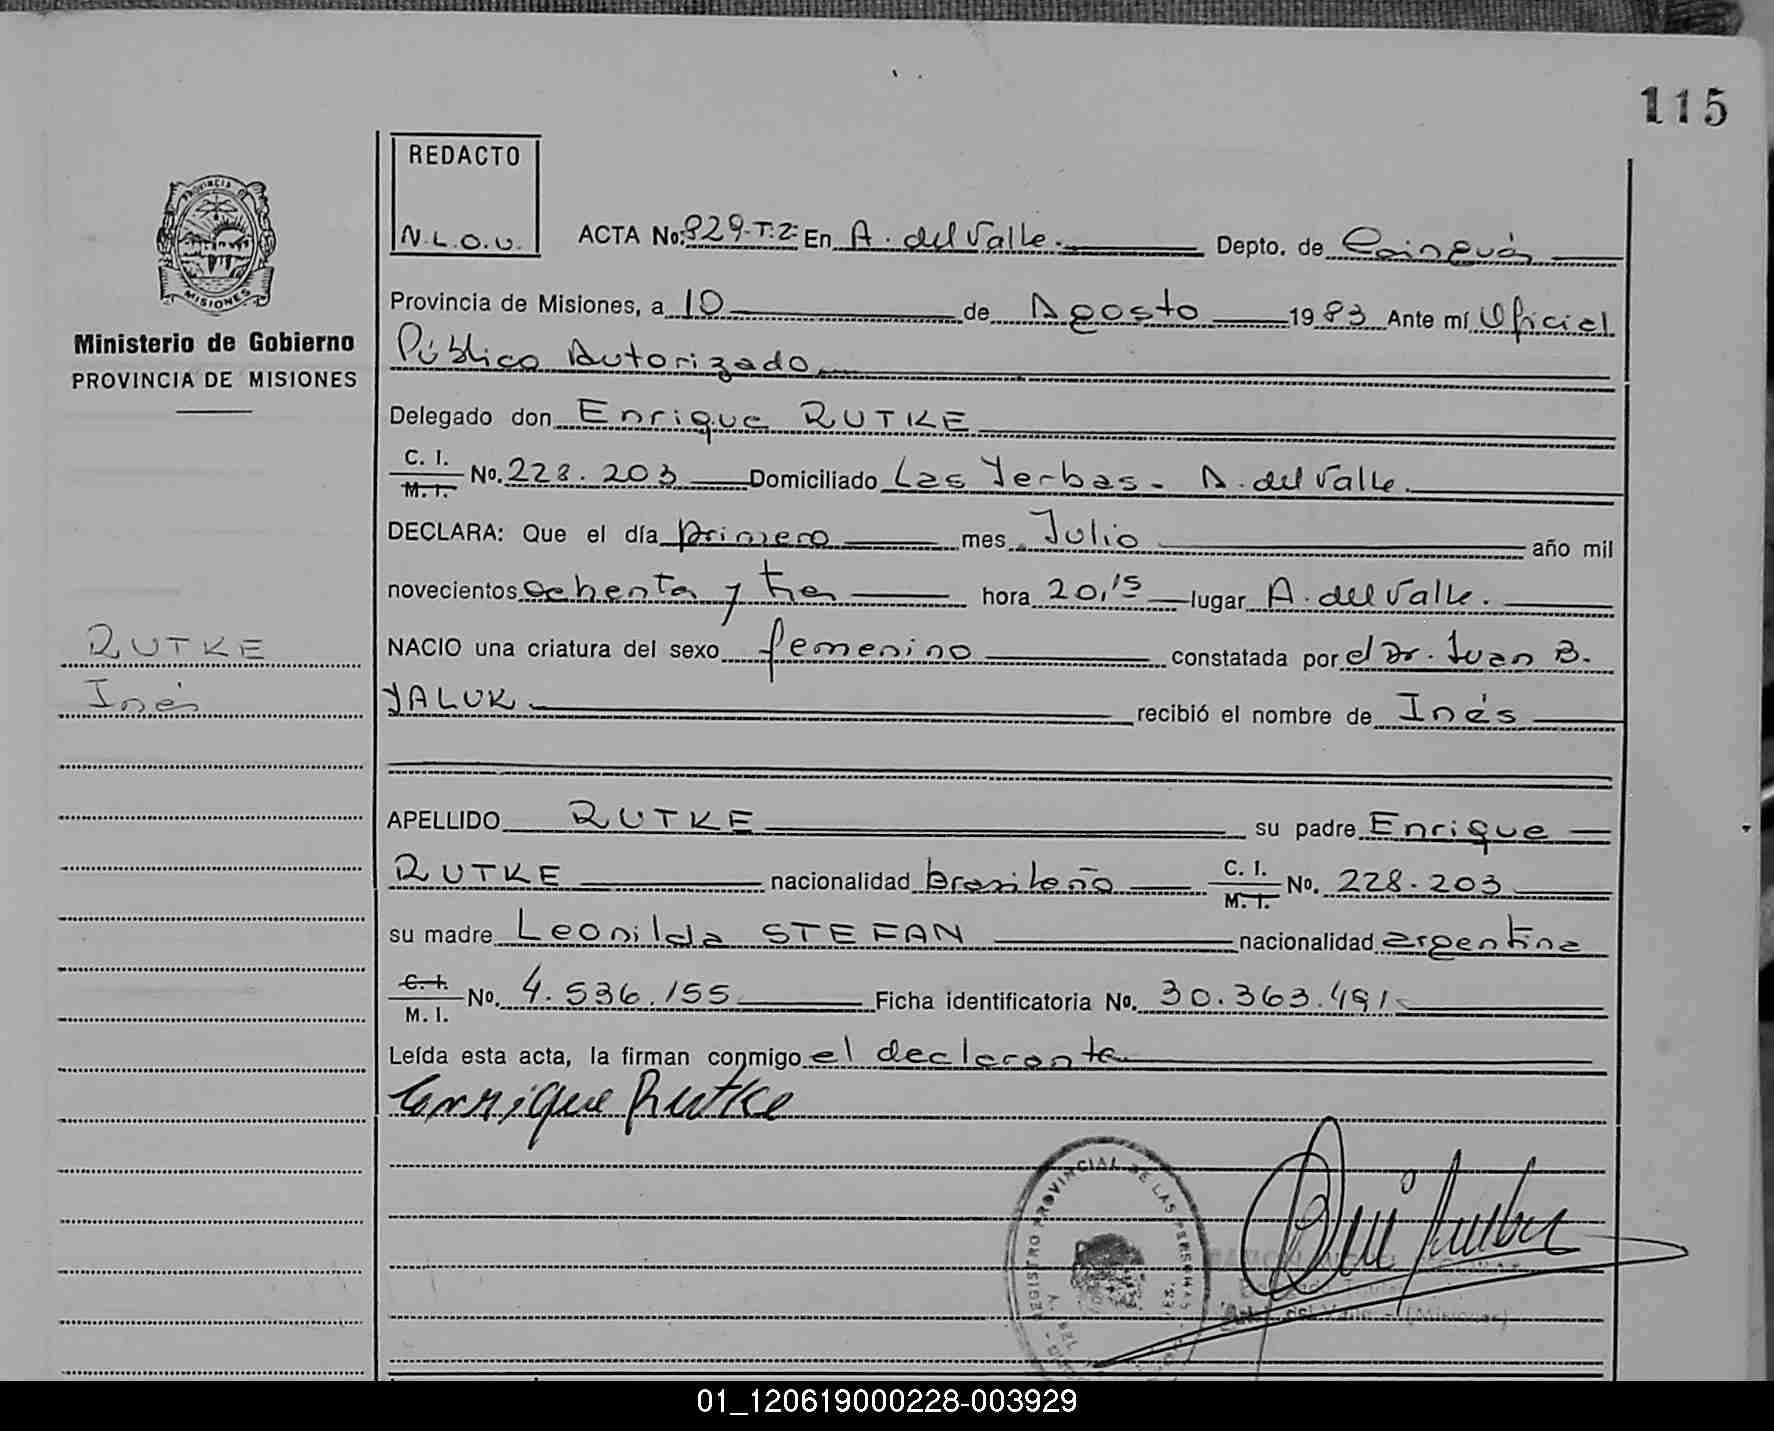 115
REDACTO
N.L.O.U.
ACTA No. 829-T.2- En A. del Valle. Depto. de Cainguás
Provincia de Misiones, a 10 de Agosto 1983 Ante mí Oficial
Público Autorizado
Ministerio de Gobierno
PROVINCIA DE MISIONES
Delegado don Enrique RUTKE
C. I.
M. I. No. 228.203 Domiciliado Las Yerbas - A. del Valle.
DECLARA: Que el día primero mes Julio año mil
novecientos ochenta y tres hora 20,15 lugar A. del Valle.
NACIO una criatura del sexo femenino constatada por el Dr. Juan B.
YALUK recibió el nombre de Inés
RUTKE
Inés
APELLIDO RUTKE su padre Enrique
RUTKE nacionalidad brasileño C. I.
M. I. No. 228.203
su madre Leonilda STEFAN nacionalidad argentina
C. I.
M. I. No. 4.536.155 Ficha identificatoria No. 30.363.491
Leída esta acta, la firman conmigo el declarante
Enrique Rutke
REGISTRO PROVINCIAL DE LAS PERSONAS
(Misiones)
01_120619000228-003929